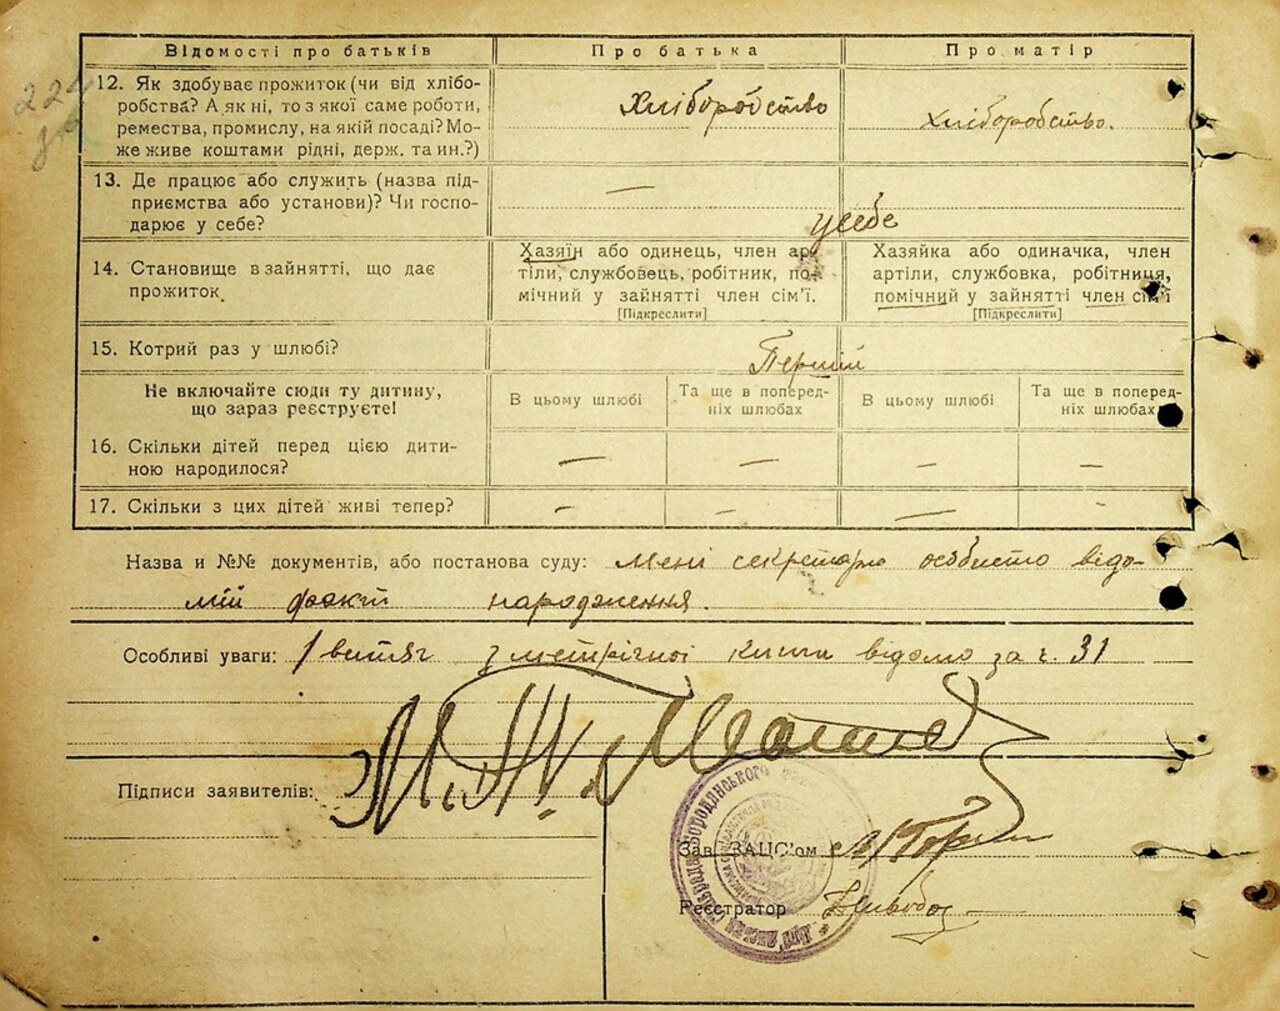 Відомості про батьків
Про батька
Про матір
12. Як здобуває прожиток (чи від хлібо-
робства? А як ні, то з якої саме роботи,
ремества, промислу, на якій посаді? Мо-
же живе коштами рідні, держ. та ин.?)
Хліборобство
Хліборобство.
13. Де працює або служить (назва під-
приємства або установи)? Чи госпо-
дарює у себе?
—
у себе
14. Становище в зайнятті, що дає
прожиток.
Хазяїн або одинець, член ар-
тіли, службовець, робітник, по-
мічний у зайнятті член сім'ї.
[Підкреслити]
Хазяйка або одиначка, член
артіли, службовка, робітниця,
помічний у зайнятті член сім'ї
[Підкреслити]
15. Котрий раз у шлюбі?
Перший
Не включайте сюди ту дитину,
що зараз реєструєте!
В цьому шлюбі
Та ще в поперед-
ніх шлюбах
В цьому шлюбі
Та ще в поперед-
ніх шлюбах
16. Скільки дітей перед цією дити-
ною народилося?
— — — —
17. Скільки з цих дітей живі тепер?
— — — -
Назва и №№ документів, або постанова суду: мені секретарю особисто відо-
мій факт народження.
Особливі уваги: витяг з метричної книги відомо за ч. 31
Підписи заявителів:
Зав. ЗАЦС'ом
Реєстратор